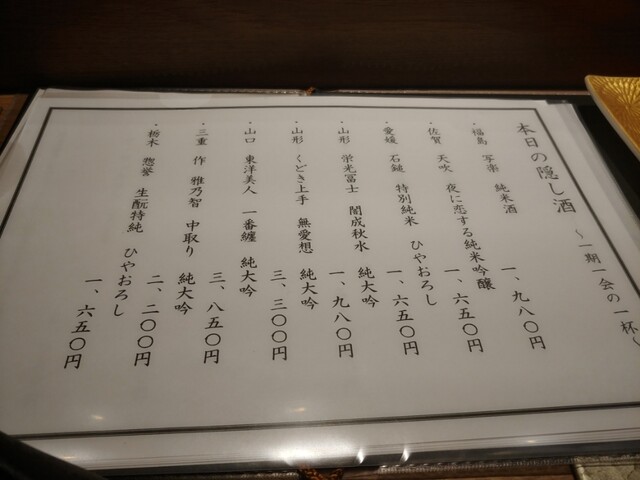 本日の隠し酒 ～一期一会の一杯～
・福島 写楽 純米酒
一、九八〇円
・佐賀 天吹 夜に恋する純米吟醸
一、六五〇円
・愛媛 石鎚 特別純米 ひやおろし
一、六五〇円
・山形 栄光冨士 闇成秋水 純大吟
一、九八〇円
・山形 くどき上手 無愛想 純大吟
三、三〇〇円
・山口 東洋美人 一番纏 純大吟
三、八五〇円
・三重 作 雅乃智 中取り 純大吟
二、二〇〇円
・栃木 惣誉 生酛特純 ひやおろし
一、六五〇円